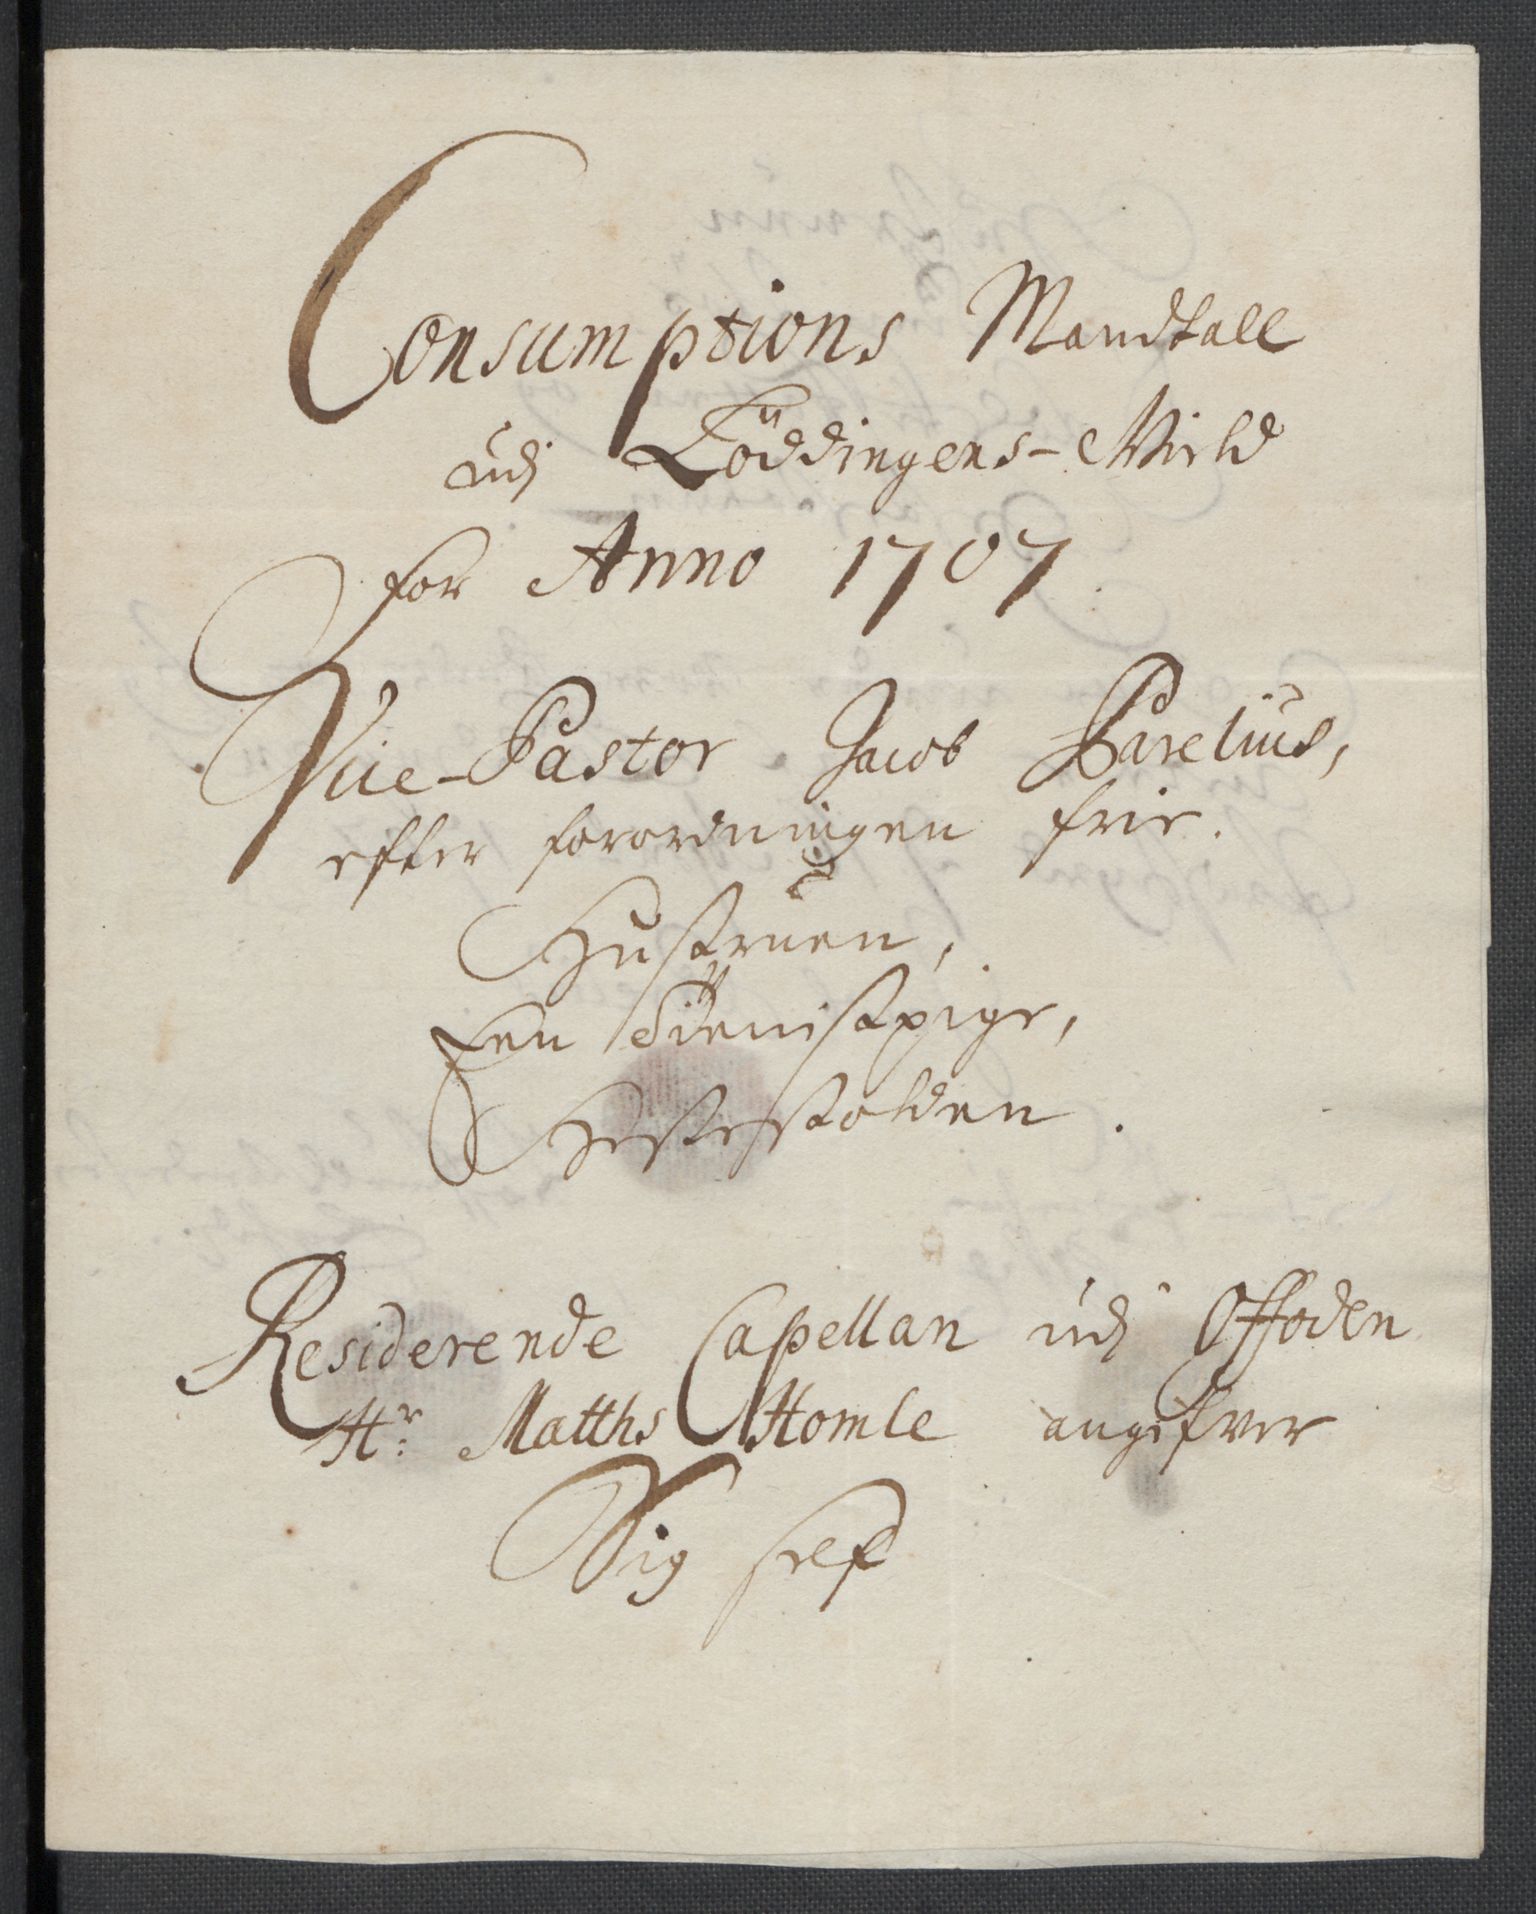 Consumptions Mandtall
udj Löddingens-Gield
for Anno 1707
Vice-Pastor Jacob Parelius,
efter forordningen frie.
Hustruen,
Een tienistpige,
Hestestolden.
Residerende Capellan udj Offoden
Hr: Matths Homle angifver
Sig self